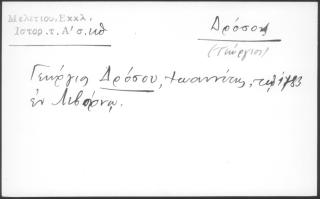 Μελετίου, Εκκλ.
Ιστορ. τ. Α' σ. κθ
Δρόσου
(Γεώργιος)
Γεώργιος Δρόσου, Ιωαννίτης, τω 1783
εν Λιβόρνω.